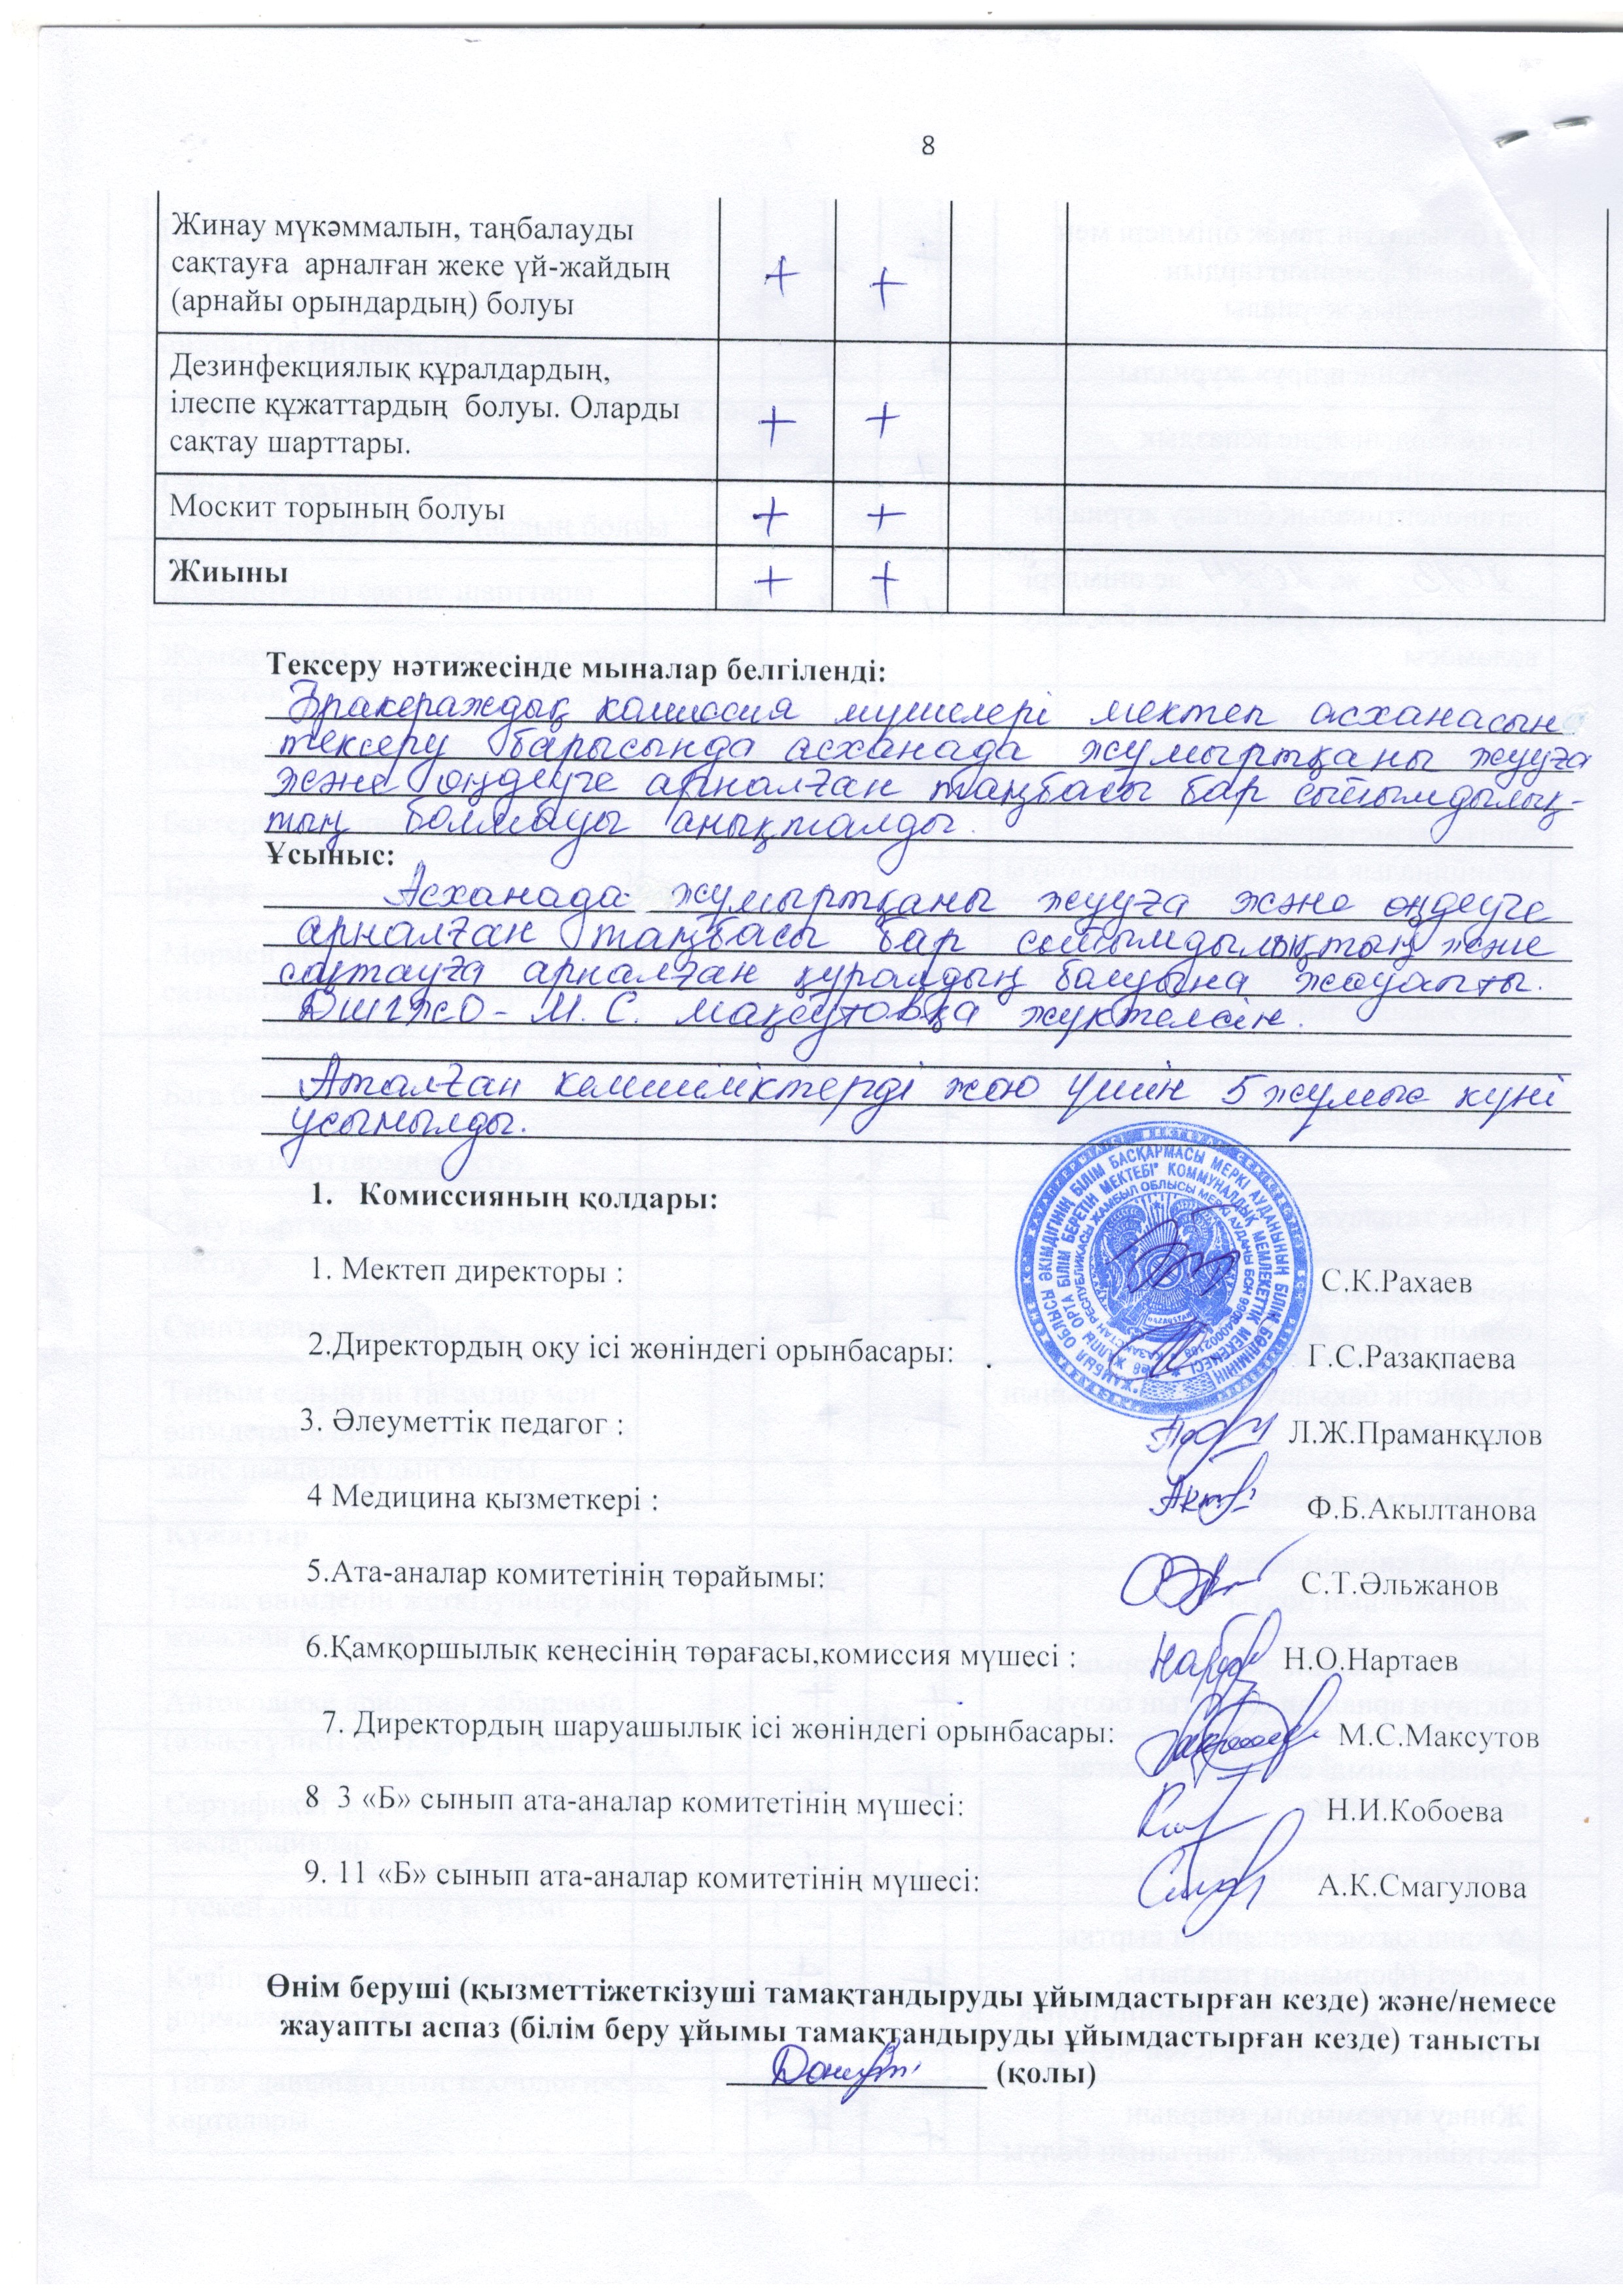 8
Жинау мүкәммалын, таңбалауды
сақтауға арналған жеке үй-жайдың
(арнайы орындардың) болуы
+ +
Дезинфекциялық құралдардың,
ілеспе құжаттардың болуы. Оларды
сақтау шарттары.
+ +
Москит торының болуы + +
Жиыны + +
Тексеру нәтижесінде мыналар белгіленді:
Бракераждық комиссия мүшелері мектеп асханасын
тексеру барысында асханада жұмыртқаны жууға
және өңдеуге арналған таңбасы бар сыйымдылық-
тың болмауы анықталды.
Ұсыныс:
Асханада жұмыртқаны жууға және өңдеуге
арналған таңбасы бар сыйымдылықтың және
сақтауға арналған құралдың болуына жауапты.
ДШІЖО - М.С. Мақсутовқа жүктелсін.
Аталған кемшіліктерді жою үшін 5 жұмыс күні
ұсынылды.
1. Комиссияның қолдары:
1. Мектеп директоры : С.К.Рахаев
2.Директордың оқу ісі жөніндегі орынбасары: Г.С.Разақпаева
3. Әлеуметтік педагог : Л.Ж.Праманқұлов
4 Медицина қызметкері : Ф.Б.Акылтанова
5.Ата-аналар комитетінің төрайымы: С.Т.Әльжанов
6.Қамқоршылық кеңесінің төрағасы,комиссия мүшесі : Н.О.Нартаев
7. Директордың шаруашылық ісі жөніндегі орынбасары: М.С.Максутов
8 3 «Б» сынып ата-аналар комитетінің мүшесі: Н.И.Кобоева
9. 11 «Б» сынып ата-аналар комитетінің мүшесі: А.К.Смагулова
Өнім беруші (қызметтіжеткізуші тамақтандыруды ұйымдастырған кезде) және/немесе
жауапты аспаз (білім беру ұйымы тамақтандыруды ұйымдастырған кезде) танысты
(қолы)